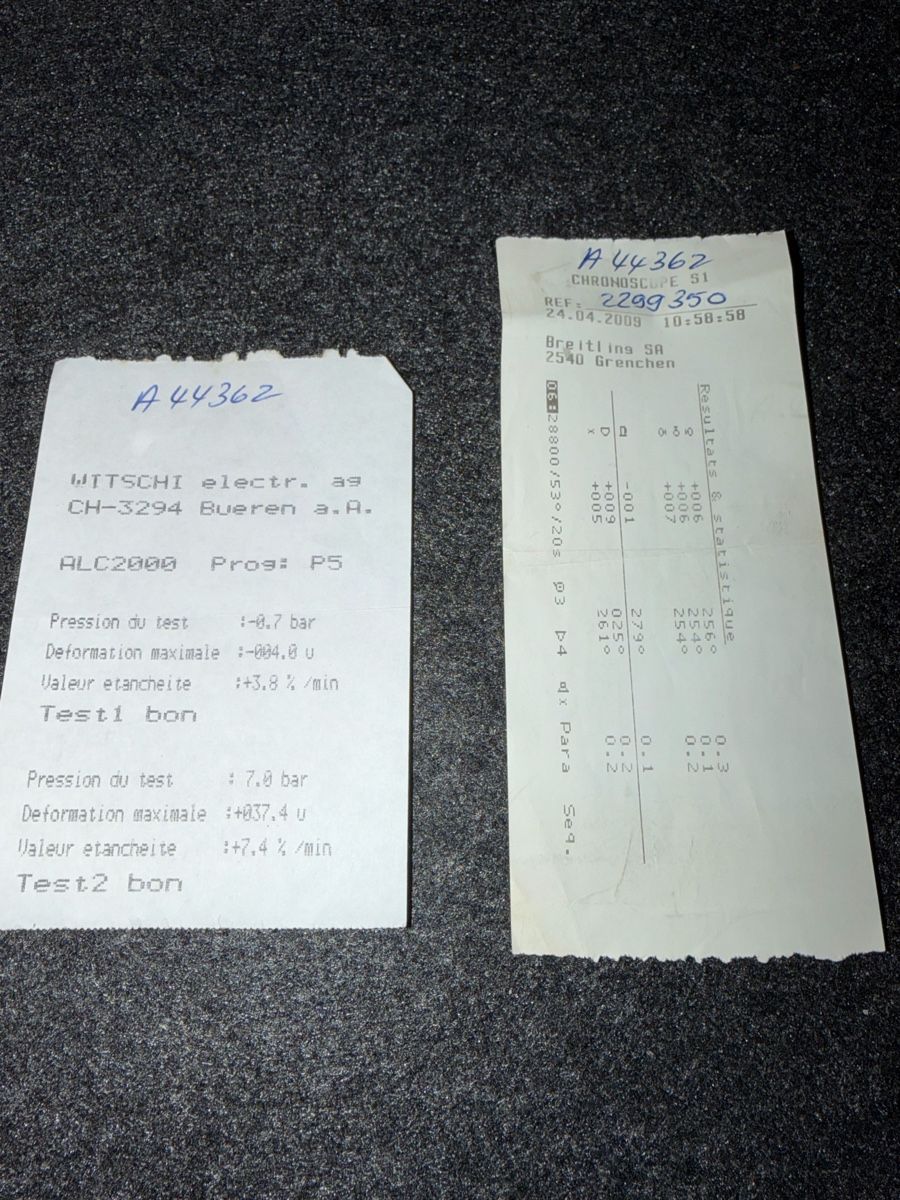 A44362
WITSCHI electr. ag
CH-3294 Bueren a.A.
ALC2000 Prog: P5
Pression du test :-0.7 bar
Deformation maximale :-004.0 u
Valeur etancheite :+3.8 % /min
Test1 bon
Pression du test : 7.0 bar
Deformation maximale :+037.4 u
Valeur etancheite :+7.4 % /min
Test2 bon
A44362
CHRONOSCOPE S1
REF: 2299350
24.04.2009 10:58:58
Breitling SA
2540 Grenchen
Resultats & statistique
+006 256° 0.3
+006 254° 0.1
+007 254° 0.2
-001 279° 0.1
D +009 025° 0.2
x +005 261° 0.2
06:28800/53°/20s 3 4 x Para Seq.